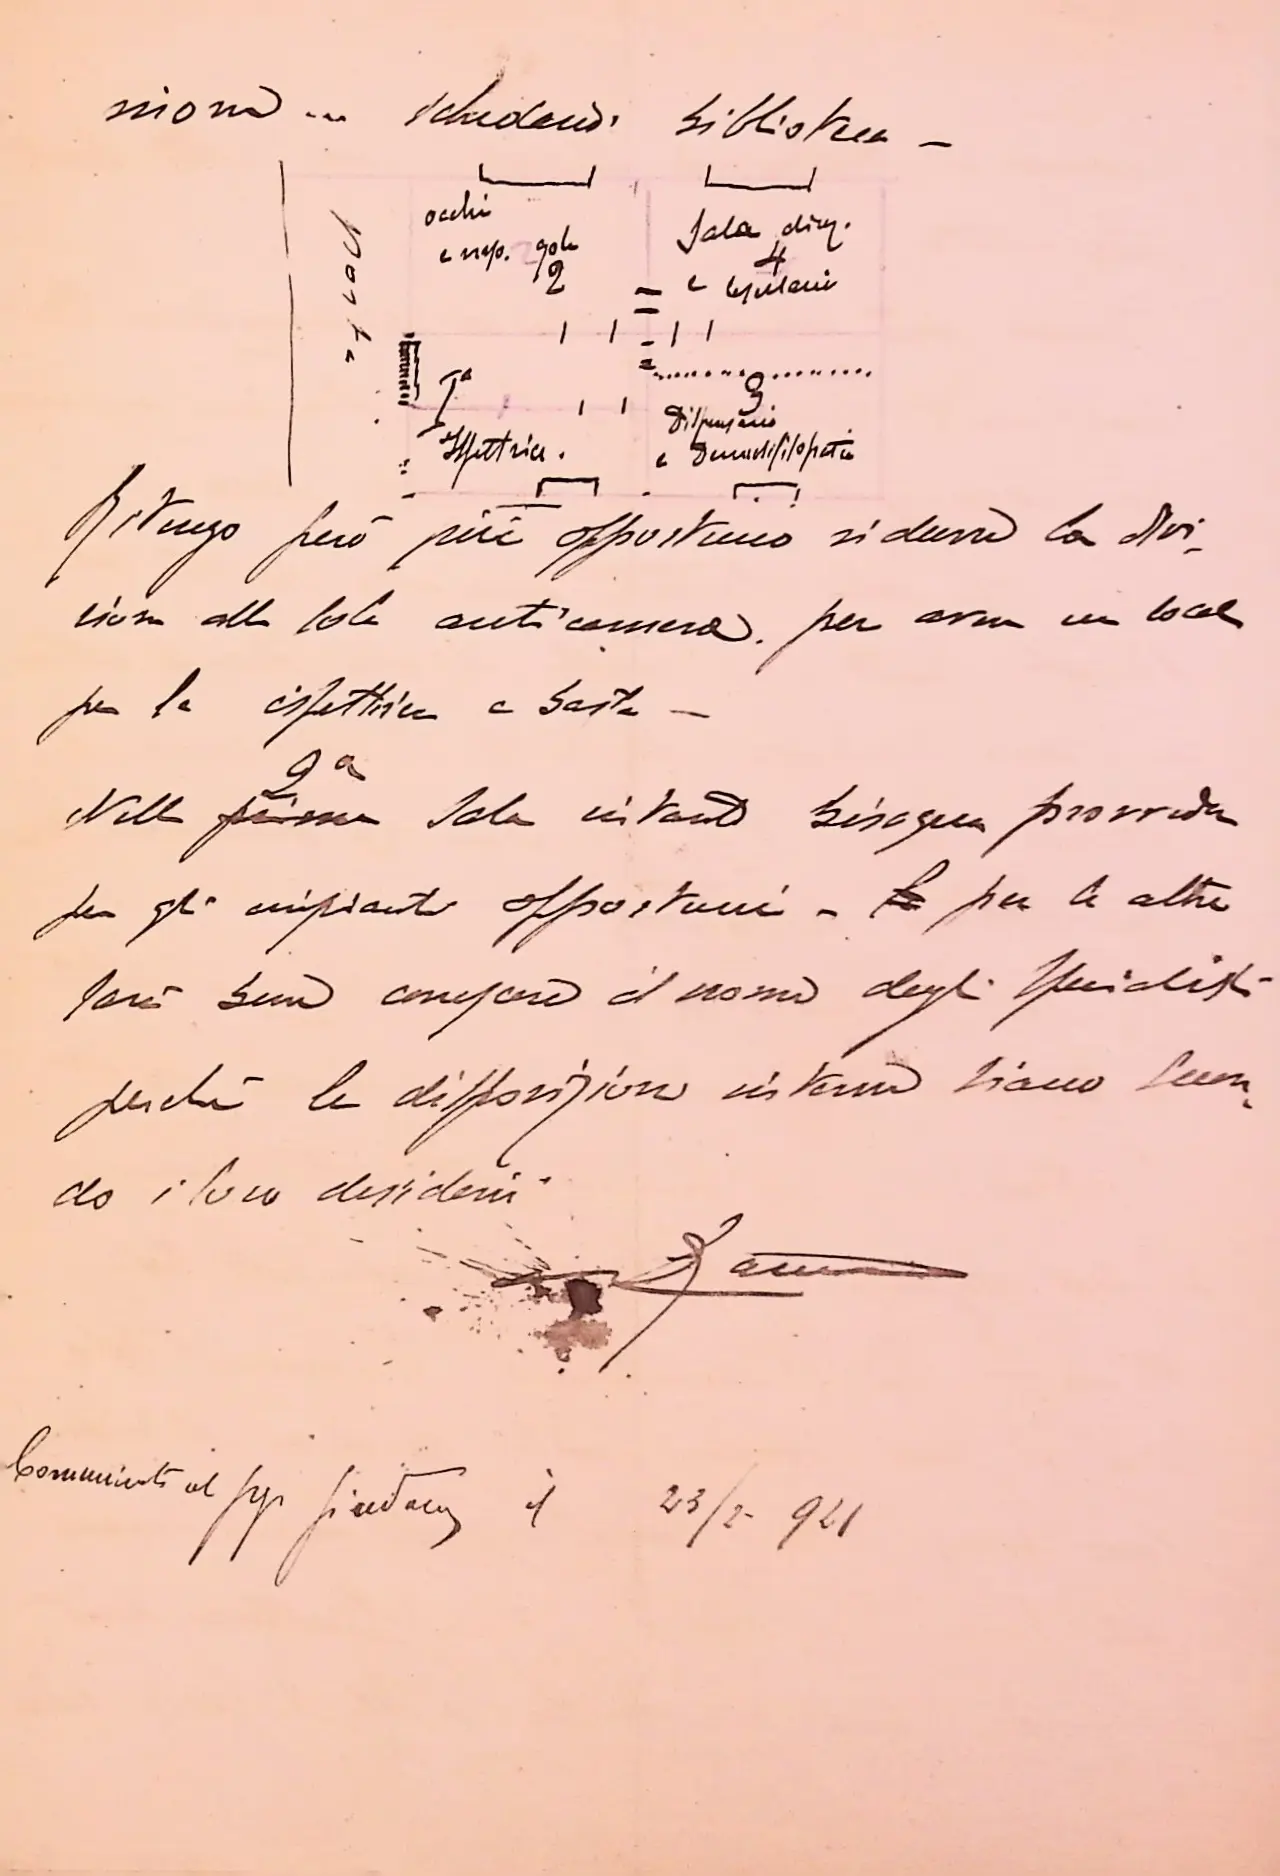 sione - schedario biblioteca -
porta
occhi
e nap. gola
2
Sala direz.
4
e
1ª
Ispettrice.
3
Dispensario
e Dermosifilopatia
Ritengo però più opportuno ridurre la divi-
sione alla sola anticamera. per avere un locale
per la ispettrice e basta -
2ª
Nella prima Sala intanto bisogna provvedere
per gli impianti opportuni - per le altre
sarà bene conoscere il nome degli specialisti
perchè le disposizioni interne siano secon-
do i loro desideri
Comunicato al il 23/2 921